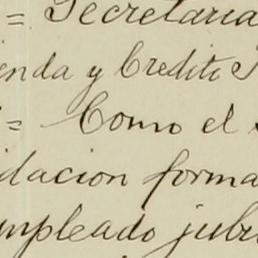 = Secretaria
enda y Credito P
= Como el
idacion forma
mpleado jubi